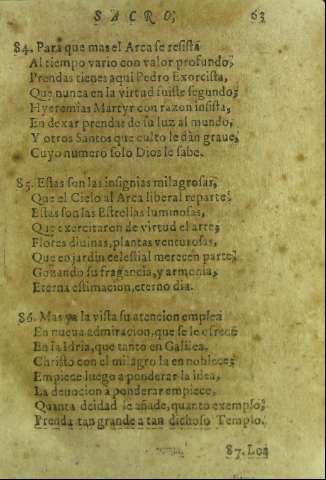 SACRO, 63
84. Para que mas el Arca se resista
Al tiempo vario con valor profundo,
Prendas tienes aqui Pedro Exorcista,
Que nunca en la virtud fuiste segundo;
Hyeremias Martyr con razon insista,
En dexar prendas de su luz al mundo,
Y otros Santos que culto le dàn graue,
Cuyo numero solo Dios le sabe.
85. Estas son las insignias milagrosas,
Que el Cielo al Arca liberal reparte;
Estas son las Estrellas luminosas,
Que exercitaron de virtud el arte;
Flores diuinas, plantas venturosas,
Que en jardin celestial merecen parte;
Gozando su fragancia, y armonia,
Eterna estimacion, eterno dia.
86. Mas ya la vista su atencion emplea
En nueua admiracion, que se le ofrece
En la Idria, que tanto en Galilea,
Christo con el milagro la ennoblece;
Empiece luego a ponderar la idea,
La deuocion a ponderar empiece,
Quanta deidad le añade, quanto exemplo,
Prenda tan grande a tan dichoso Templo.
87. Los